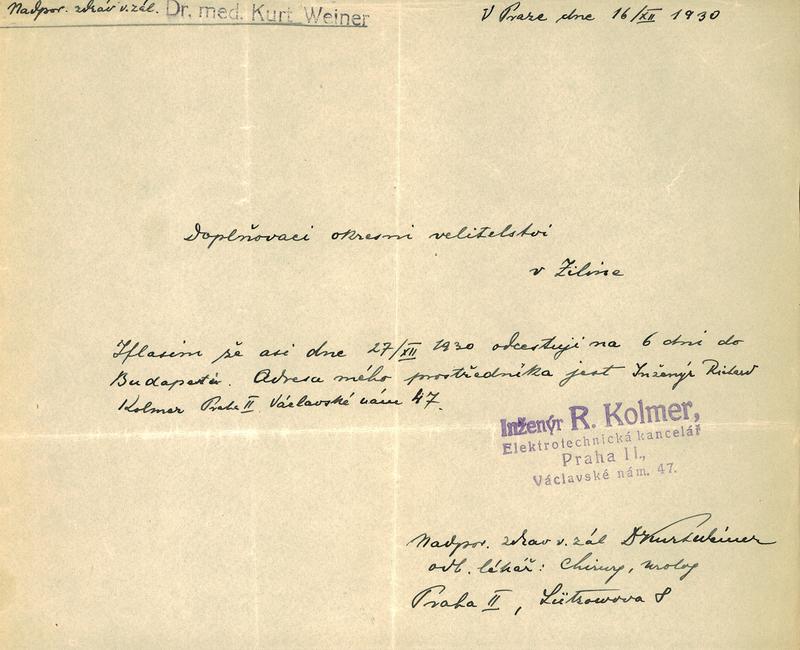 Nadpor. zdráv v. zál. Dr. med. Kurt Weiner
V Praze dne 16/XII 1930
Doplňovaci okresni velitelstvi
v Žilině
Hlasim že asi dne 27/XII 1930 odcestuji na 6 dni do
Budapešti. Adresa mého prostředníka jest Inženýr Richard
Kolmer Praha II Václavské nám 47.
Inženýr R. Kolmer,
Elektrotechnická kancelář
Praha II.,
Václavské nám. 47.
Nadpor. zdrav v. zál DKurtWeiner
odb. lékář: Chirurg, urolog
Praha II, Lützowova 8